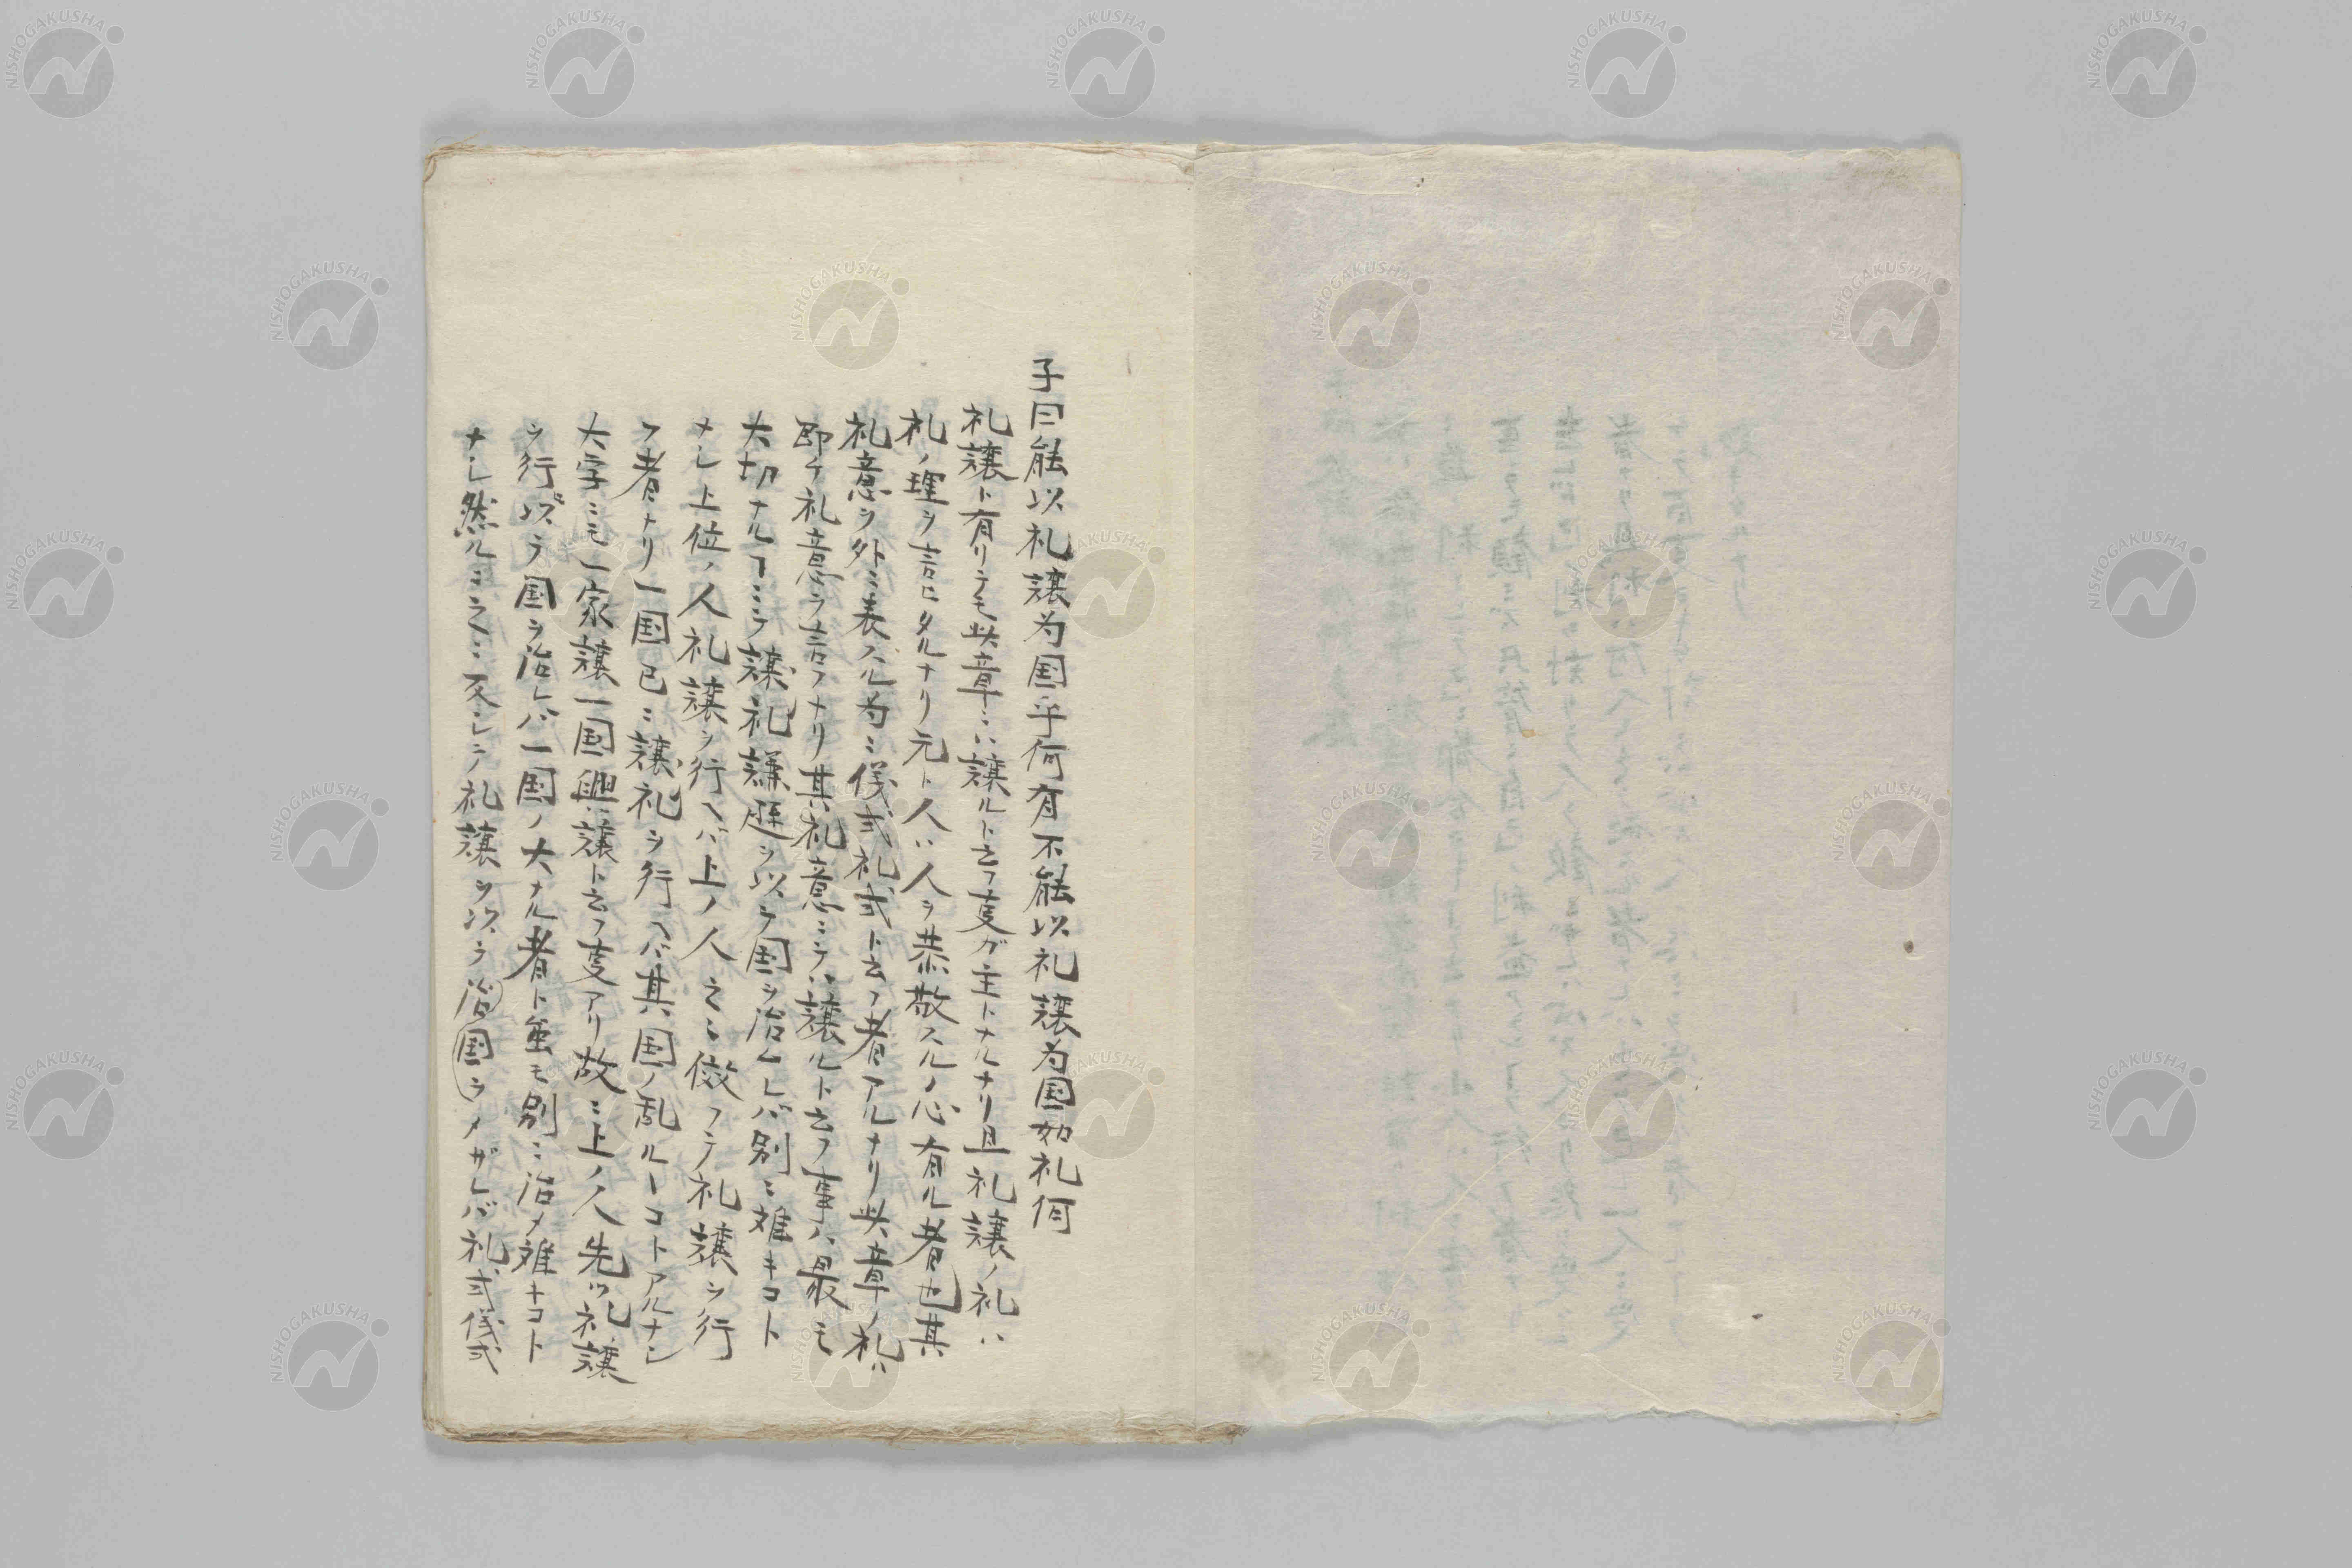 子曰能以礼譲為国乎何有不能以礼譲為国如礼何
礼譲ト有リテモ此章ニハ譲ルト云フ事ガ主トナルナリ且礼譲ノ礼ハ
礼ノ理ヲ言ヒタルナリ元ト人ハ人ヲ恭敬スルノ心有ル者也其
礼意ヲ外ニ表スル為ニ儀式礼式ト云フ者アルナリ此章ノ礼ハ
即チ礼意ヲ言フナリ其礼意ニテハ譲ルト云フ事ハ最モ
大切ナルヿニテ譲礼謙遜ヲ以テ国ヲ治ムレバ別ニ難キコト
ナシ上位ノ人礼譲ヲ行ヘバ上ノ人之ニ倣フテ礼譲ヲ行
フ者ナリ一国已ニ譲礼ヲ行ヘバ其国ノ乱ルヽコトアルナシ
大学ニモ一家譲一国興譲ト云フ事アリ故ニ上ノ人先ツ礼譲
ヲ行以テ国ヲ治レバ一国ノ大ナル者ト雖モ別ニ治メ難キコト
ナシ然ルニ之ニ反シテ礼譲ヲ以テ治国ヲメザレバ礼式儀式
NISHOGAKUSHA